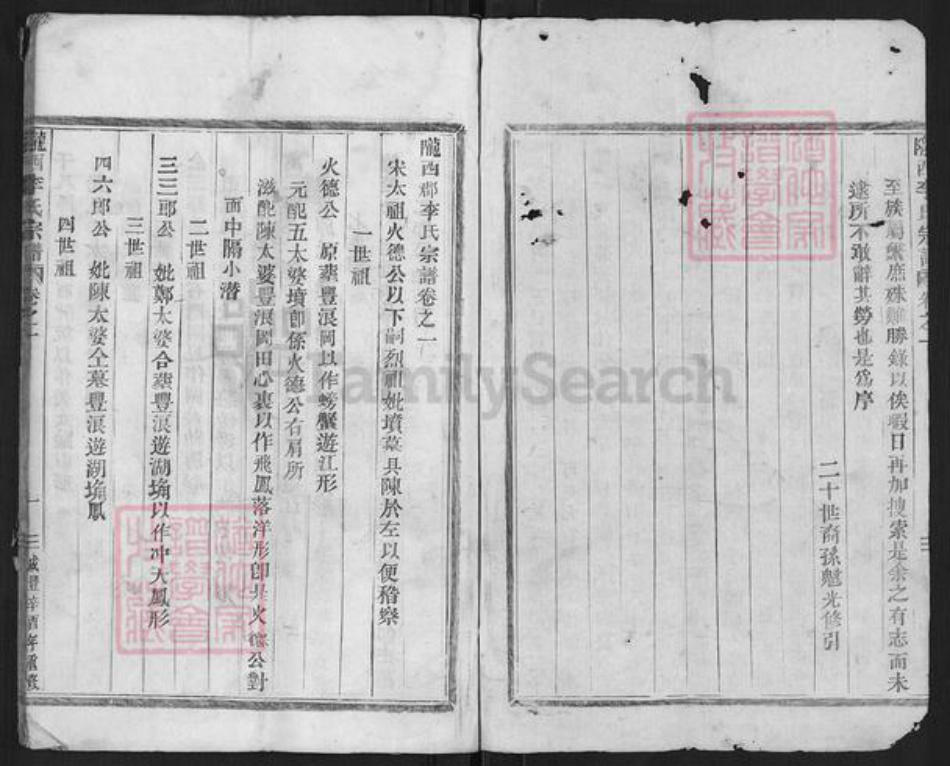 至族屬繁庶殊難勝錄以俟暇日再加搜索是余之有志而未
逮所不敢辭其勞也是爲序
二十世裔孫魁光修引
隴西郡李氏宗譜卷之一
宋太祖火德公以下嗣烈祖妣墳墓具陳於左以便稽察
一世祖
火德公 原葬豐浪岡以作螃蟹遊江形
元配五太婆墳卽係火德公右肩所
滋配陳太婆豐浪岡田心裏以作飛鳳落洋形卽是火德公對
面中隔小潜
二世祖
三三郎公 妣鄭大婆合葬豐浪遊湖塥以作冲天鳳形
三世祖
四六郎公 妣陳大婆仝墓豐浪遊湖塥鳳
四世祖
隴西李氏宗譜 卷之一 一 咸豐辛酉年重裝
FamilySearch